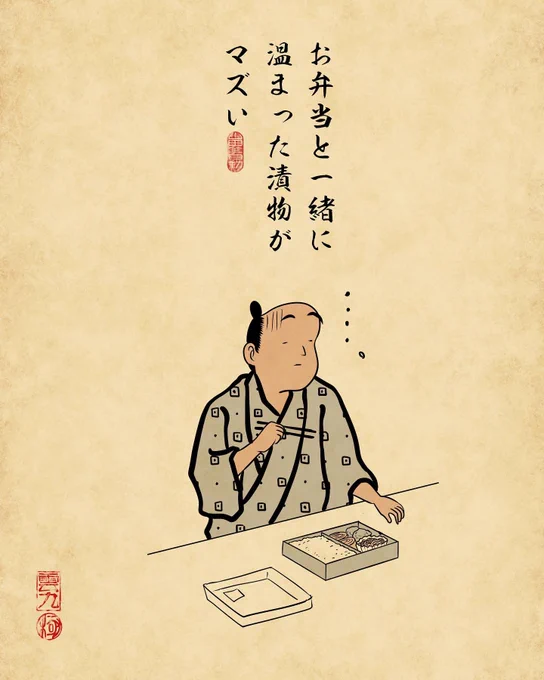 お弁当と一緒に
温まった漬物が
マズい